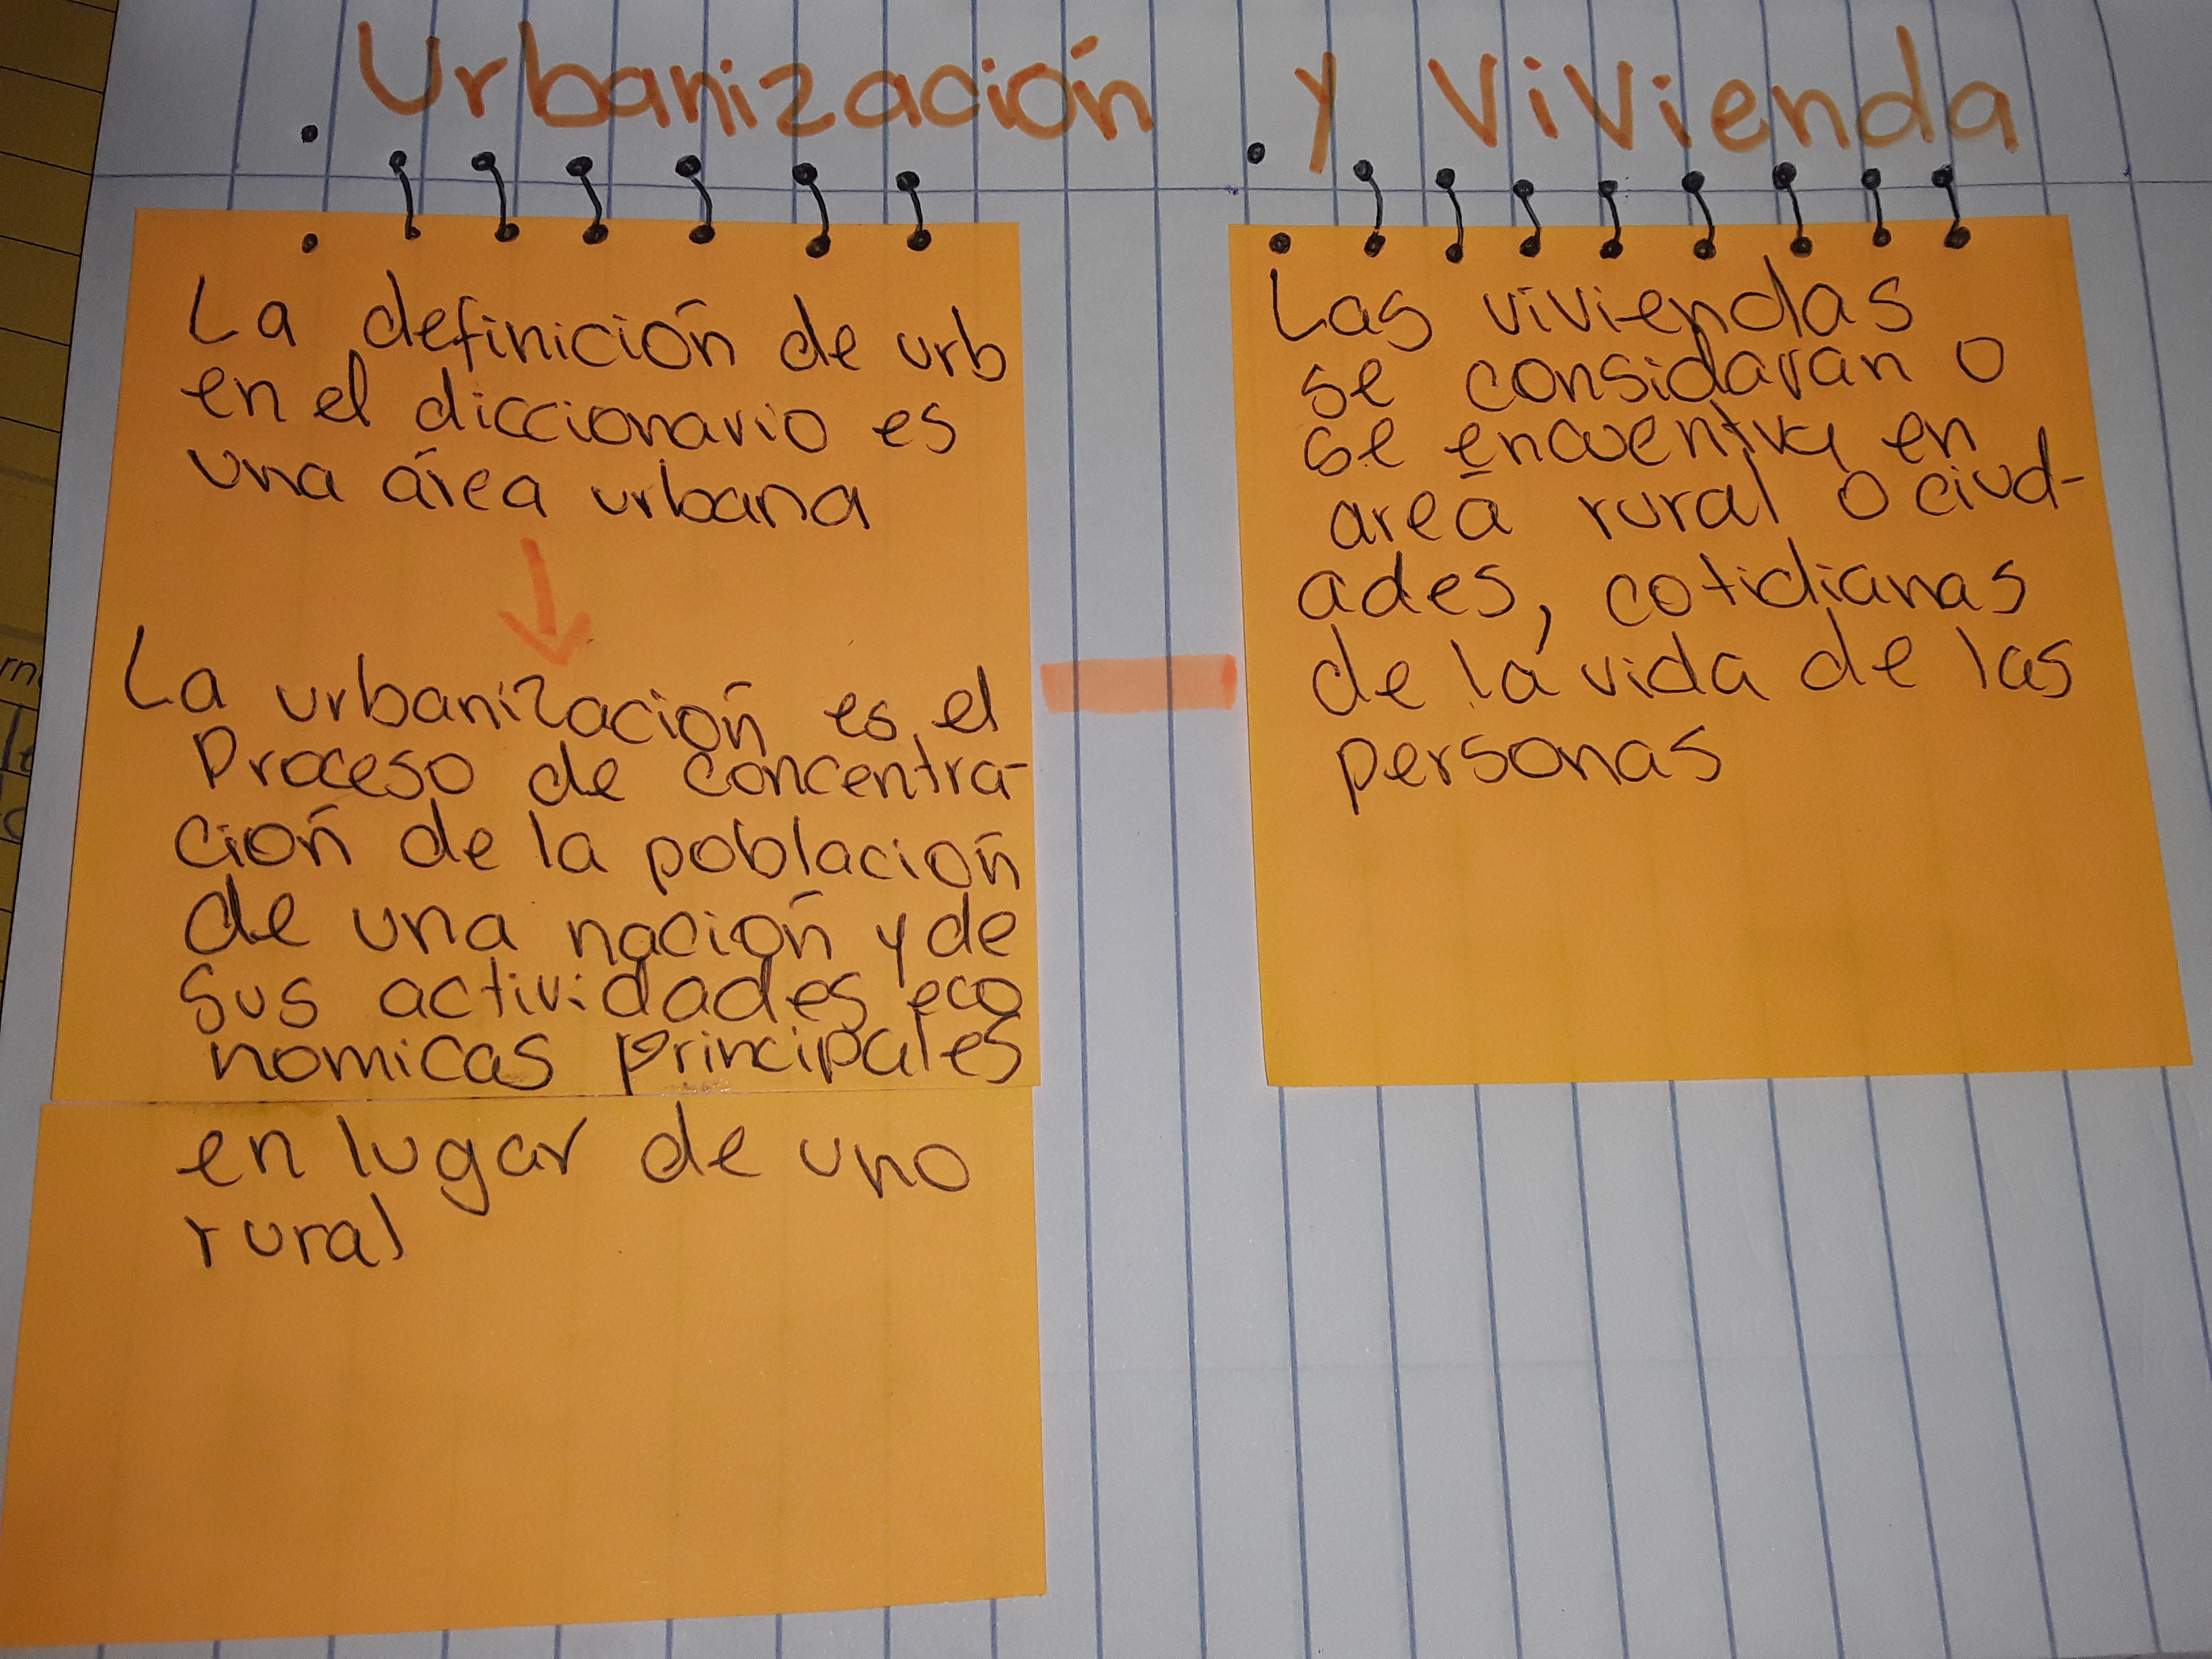 Urbanización y Vivienda
La definición de urb
en el diccionario es
una área urbana
La urbanización es el
Proceso de concentra-
ción de la población
de una nación y de
sus actividades eco
nomicas principales
en lugar de uno
rural
Las viviendas
se considaran o
se encuentra en
area rural o ciud-
ades, cotidianas
de la vida de las
personas